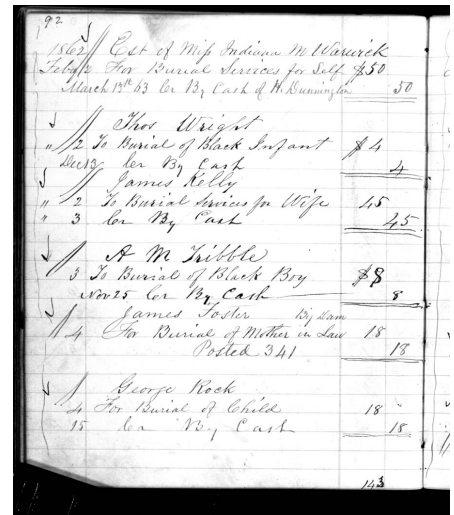 192
1862 Est of Miss Indiana M Warwick
Feby 2 For Burial Services for Self $50
March 17th 63 Cr By Cash of H. Dunnington 50
Thos Wright
" 2 To Burial of Black Infant $4
Dec 13 Cr By Cash 4
James Kelly
" 2 To Burial Services for Wife 45
" 3 Cr By Cash 45
A M Tribble
3 To Burial of Black Boy $8
Nov 25 Cr By Cash 8
James Foster Big Dam
4 For Burial of Mother in Law 18
Posted 341 18
George Rock
4 For Burial of Child 18
15 Cr By Cash 18
143